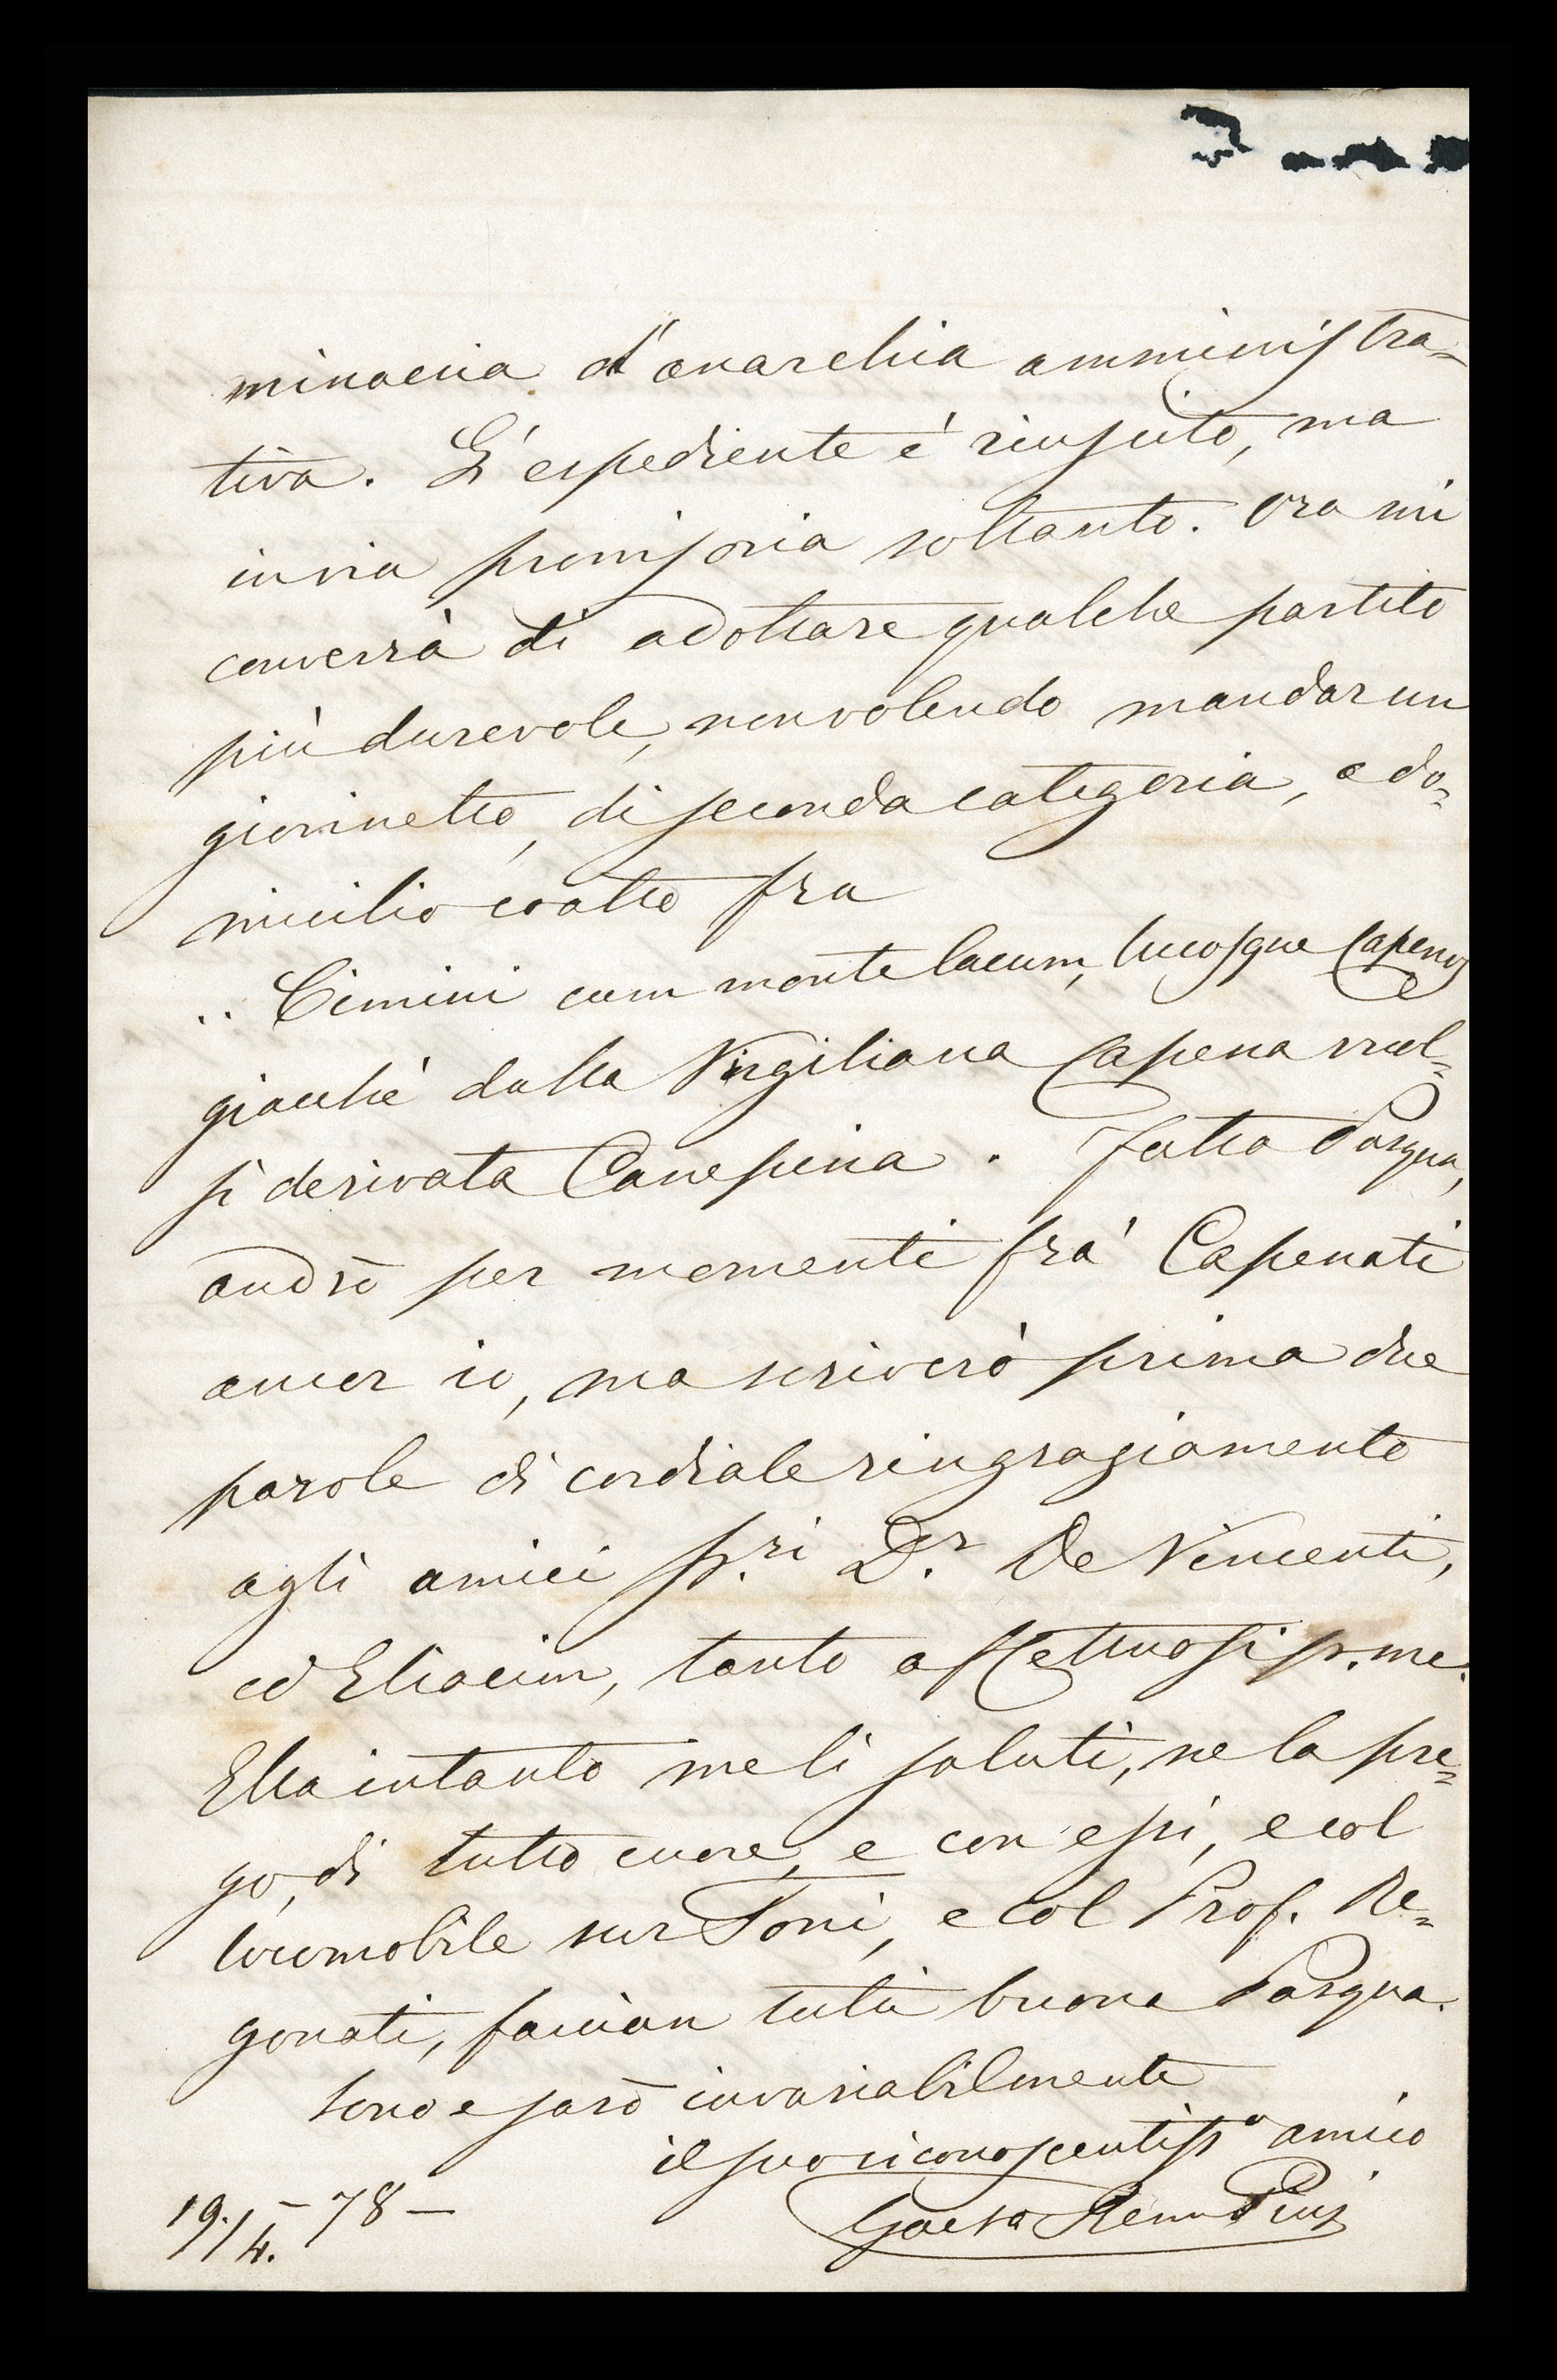 minaccia d'anarchia amministra=
tiva. L'espediente è riuscito, ma
in via provvisoria soltanto. Ora mi
converrà di adottare qualche partito
più durevole, non volendo mandar un
giovinetto, di seconda categoria, a do=
micilio coatto fra
.. Cimini cum monte lacum, lucosque Capenos
giacchè dalla Virgiliana Capena vuol=
si derivata Canepina. Fatta Pasqua,
andrò per momenti fra' Capenati
ancor io, ma scriverò prima due
parole di cordiale ringraziamento
agli amici SS.ri D.r De Vincenti,
ed Eliacim, tanto affettuosiss.me.
Ella intanto me li saluti, ne la pre=
go, di tutto cuore, e con essi, e col
locomobile sur Toni, e col Prof. Re=
gonati, faccian tutti buona Pasqua.
Sono e sarò invariabilmente
il suo riconoscentiss.o amico
19./4. - 78 -